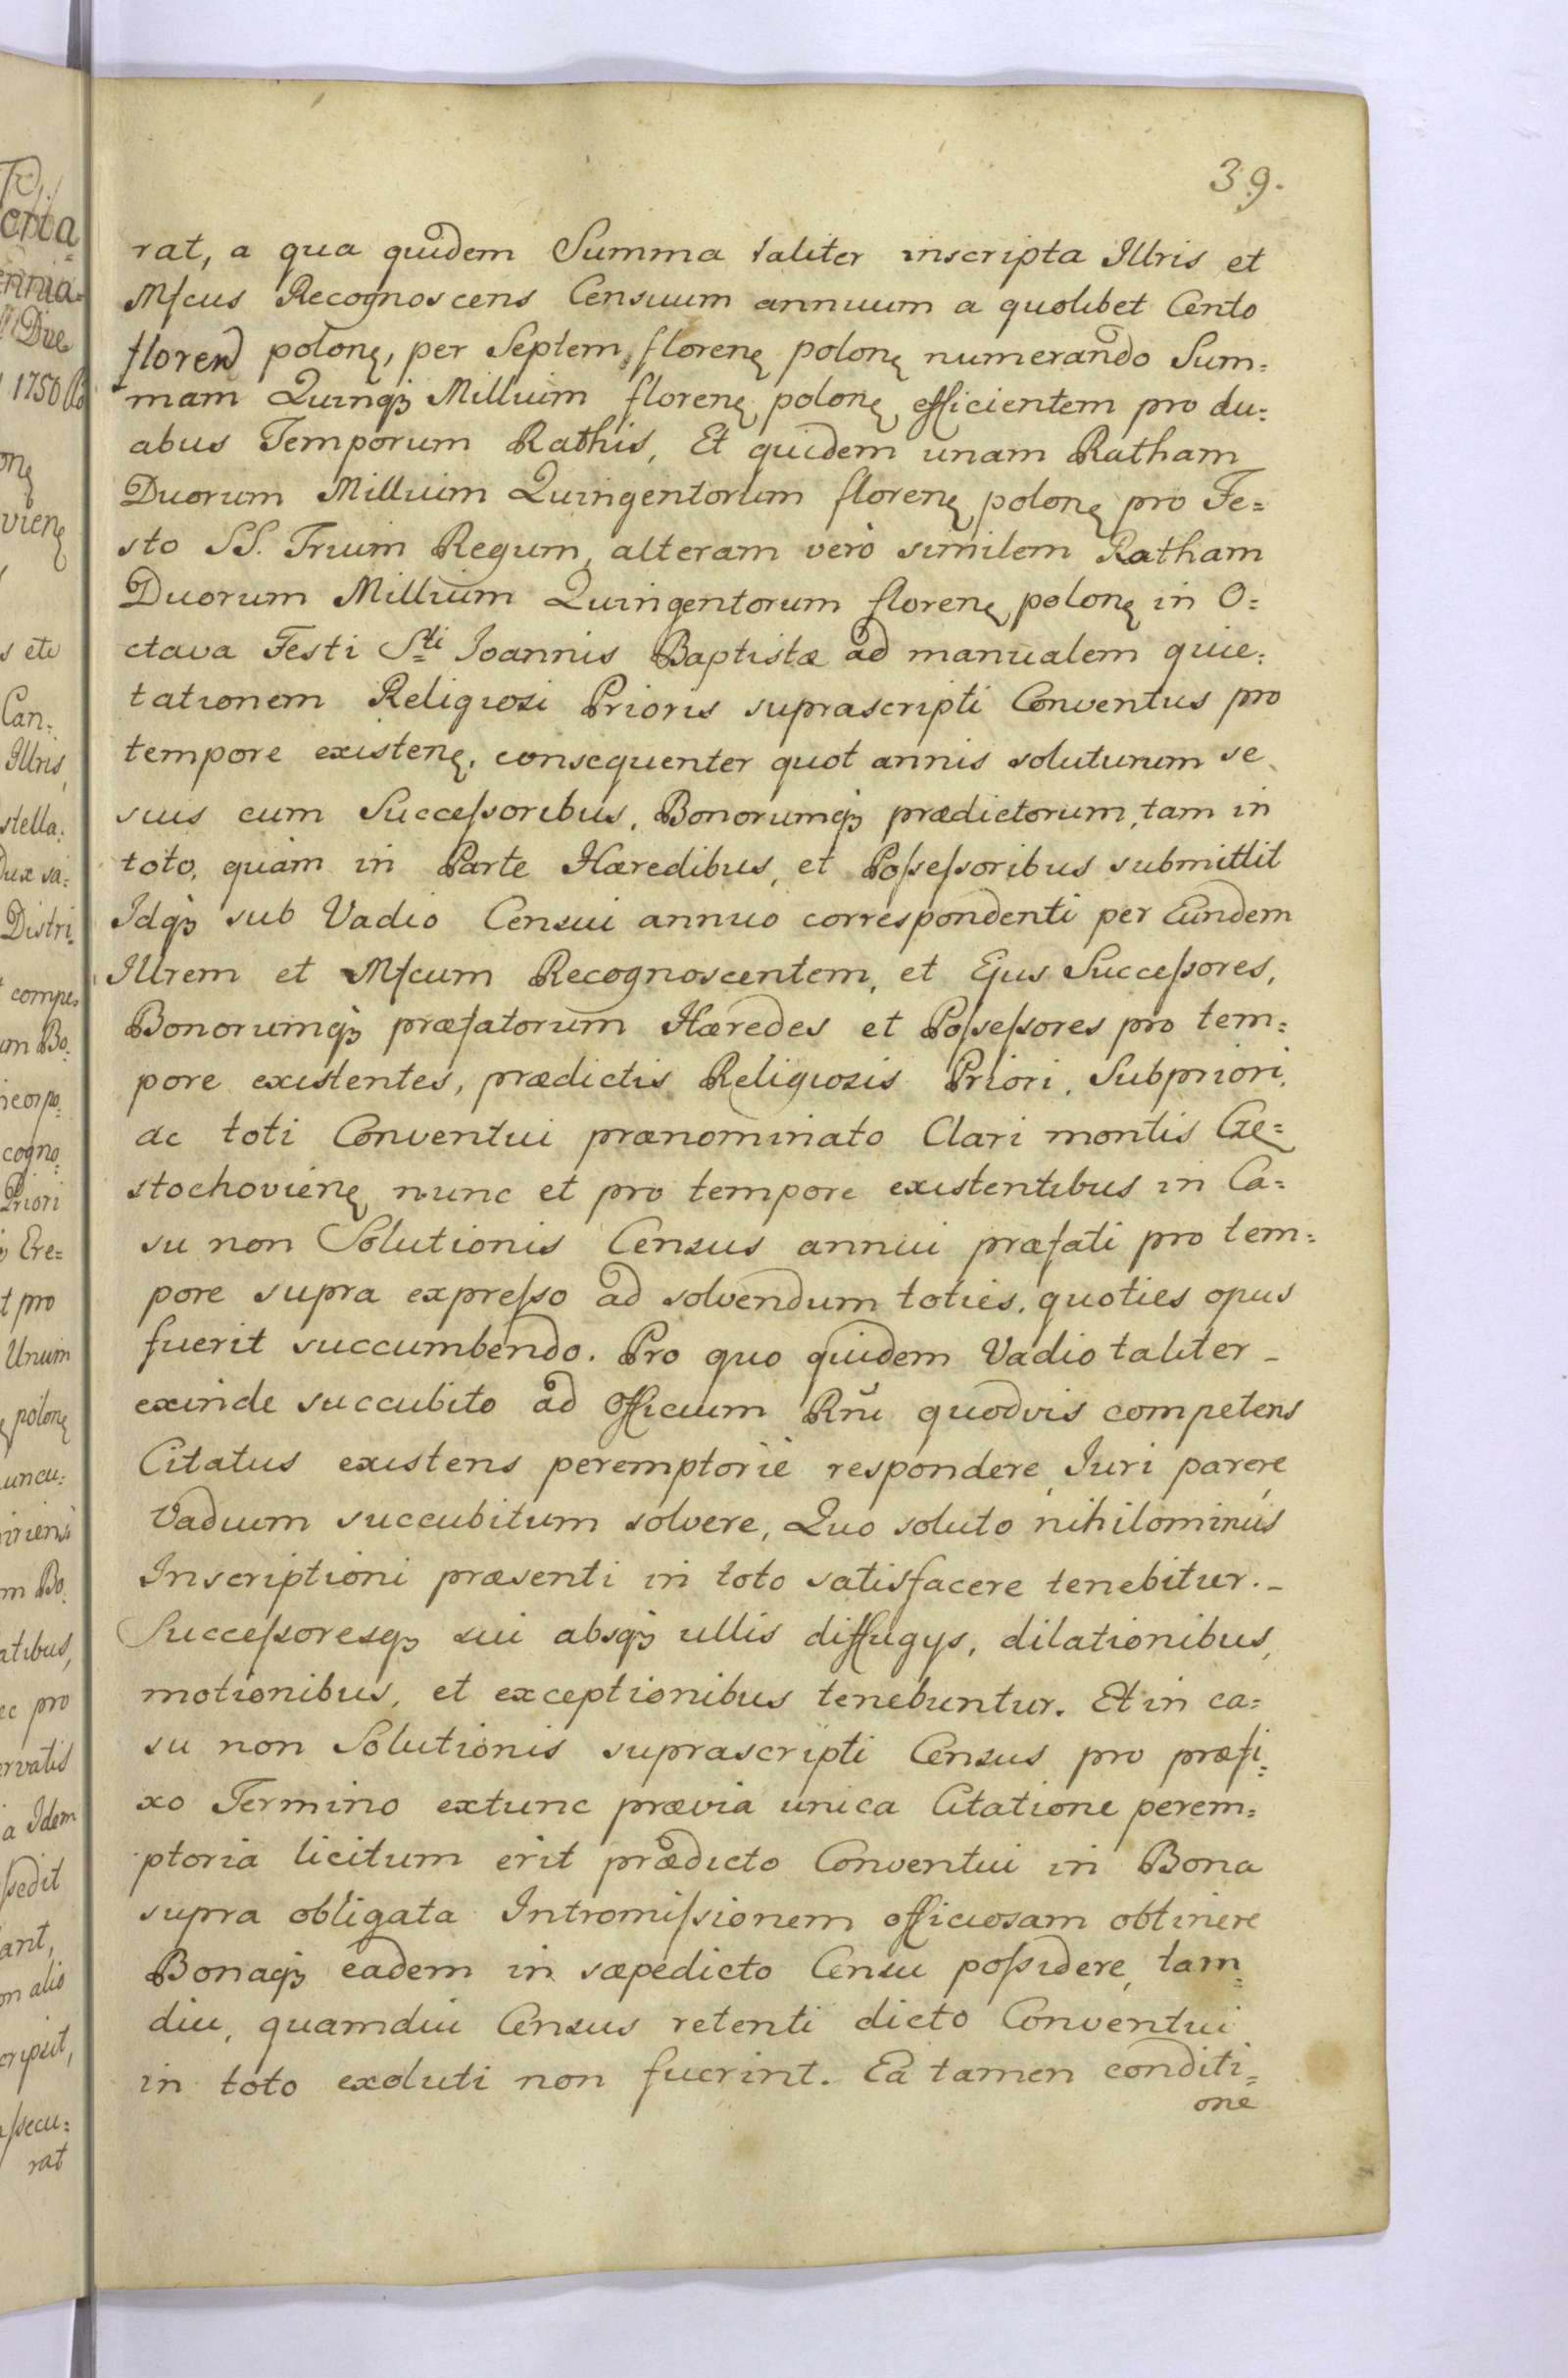 39.
rat, a qua quidem Summa taliter inscripta Illris et
Mfcus Recognoscens Censuum annuum a quolibet Cento
floren polonę, per Septem florenę polonę numerando Sum=
mam Quinqꝫ Millium florenę polonę efficientem pro du=
abus Temporum Rathis, Et quidem unam Ratham
Duorum Millium Quingentorum florenę polonę pro Fe=
sto SS. Trium Regum, alteram verò similem Ratham
Duorum Millium Quingentorum florenę polonę in O=
ctava Festi Sti Joannis Baptistæ ad manualem quie=
tationem Religiosi Prioris suprascripti Conventus pro
tempore existenę, consequenter quot annis soluturum se
suis cum Succeſsoribus, Bonorumqꝫ prædictorum, tam in
toto, quàm in Parte Hæredibus, et Poſseſsoribus submittit
Idqꝫ sub Vadio Censui annuo correspondenti per Eundem
Illrem et Mfcum Recognoscentem, et Ejus Succeſsores,
Bonorumqꝫ præfatorum Hæredes et Poſseſsores pro tem=
pore existentes, prædictis Religiosis Priori, Subpriori,
ac toti Conventui prænominato Clari montis Cze=
stochovienę nunc et pro tempore existentibus in Ca=
su non Solutionis Census annui præfati pro tem=
pore supra expreſso ad solvendum toties, quoties opus
fuerit succumbendo. Pro quo quidem Vadio taliter _
exinde succubito ad Officium Rñi quodvis competens
Citatus existens peremptoriè respondere, Juri parere,
Vadium succubitum solvere, Quo soluto nihilominùs
Inscriptioni præsenti in toto satisfacere tenebitur. _
Succeſsoresqꝫ sui absqꝫ ullis diffugys, dilationibus,
motionibus, et exceptionibus tenebuntur. Et in ca=
su non Solutionis suprascripti Census pro præfi=
xo Termino extunc prævia unica Citatione perem=
ptoria licitum erit prædicto Conventui in Bona
supra obligata Intromiſsionem officiosam obtinere
Bonaqꝫ eadem in sæpedicto Censu poſsidere, tam=
diu, quamdiu Census retenti dicto Conventui
in toto exoluti non fuerint. Eâ tamen conditi=
one